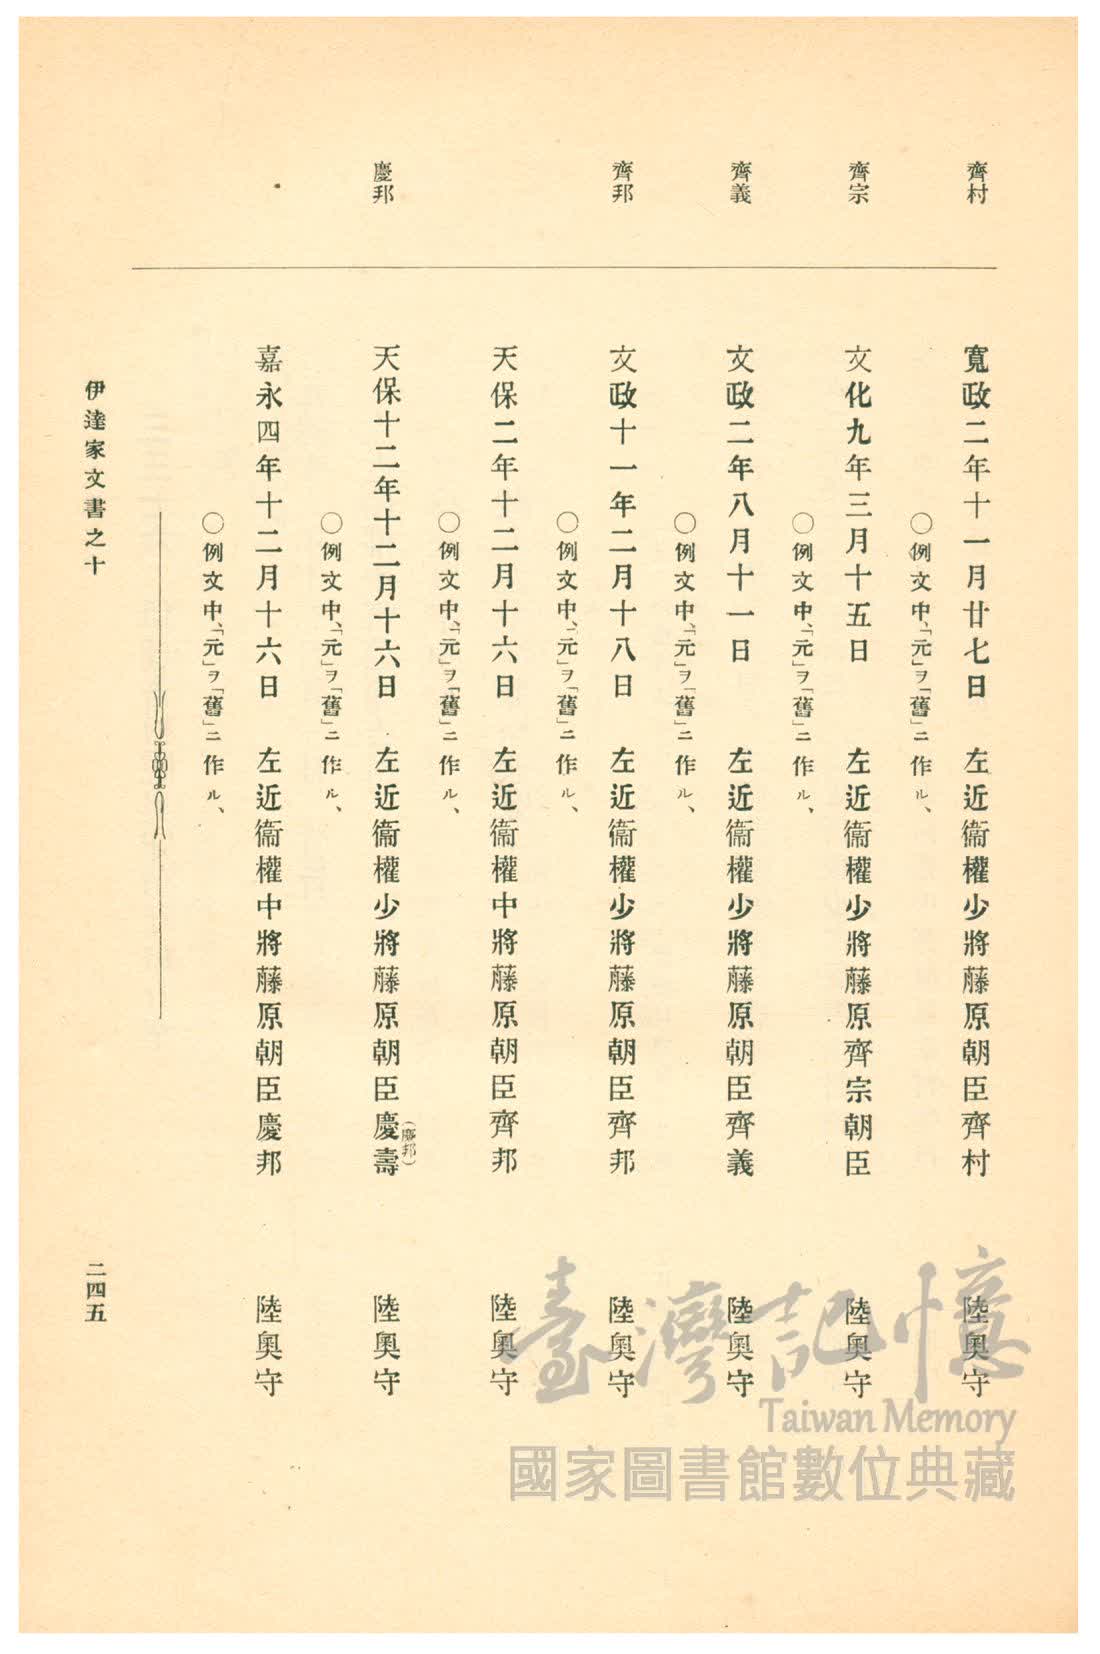 齊村
寬政二年十一月廿七日 左近衞權少將藤原朝臣齊村 陸奧守
〇例文中、「元」ヲ「舊」ニ作ル、
齊宗
文化九年三月十五日 左近衞權少將藤原齊宗朝臣 陸奧守
〇例文中、「元」ヲ「舊」ニ作ル、
齊義
文政二年八月十一日 左近衞權少將藤原朝臣齊義 陸奧守
〇例文中、「元」ヲ「舊」ニ作ル、
齊邦
文政十一年二月十八日 左近衞權少將藤原朝臣齊邦 陸奧守
〇例文中、「元」ヲ「舊」ニ作ル、
天保二年十二月十六日 左近衞權中將藤原朝臣齊邦 陸奧守
〇例文中、「元」ヲ「舊」ニ作ル、
慶邦
天保十二年十二月十六日 左近衞權少將藤原朝臣慶壽 陸奧守
(慶邦)
〇例文中、「元」ヲ「舊」ニ作ル、
嘉永四年十二月十六日 左近衞權中將藤原朝臣慶邦 陸奧守
〇例文中、「元」ヲ「舊」ニ作ル、
伊達家文書之十 二四五
臺灣記憶
Taiwan Memory
國家圖書館數位典藏